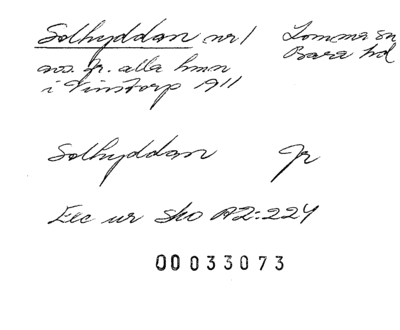 Solhyddan nr 1 Lomma sn
Bara hd
avs. fr. alla hmn
i Vinstorp 1911
Solhyddan Jr
Exc ur Sko A2:224
00033073